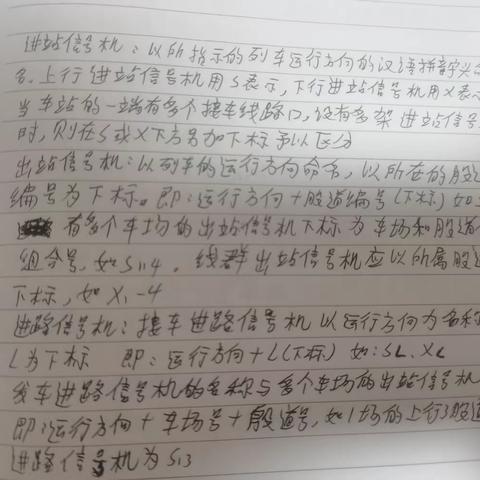 进站信号机：以所指示的列车运行方向的汉语拼音字头命
名。上行进站信号机用S表示，下行进站信号机用X表示
当车站的一端有多个接车线路口，设有多架进站信号
时，则在S或X下方另加下标予以区分
出站信号机：以列车的运行方向命名，以所在的股道
编号为下标。即：运行方向+股道编号(下标) 如
有多个车场的出站信号机下标为车场和股道
组合号，如S114。线群出站信号机应以所属股道
下标，如X1-4
进路信号机：接车进路信号机以运行方向为名称
L为下标 即：运行方向+L(下标) 如：SL、XL
发车进路信号机的名称与多个车场的出站信号机
即：运行方向+车场号+股道号，如1场的上行3股道
进路信号机为S13